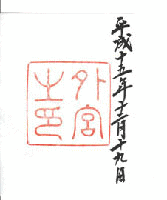 平成十五年十二月十九日
外宮
之印